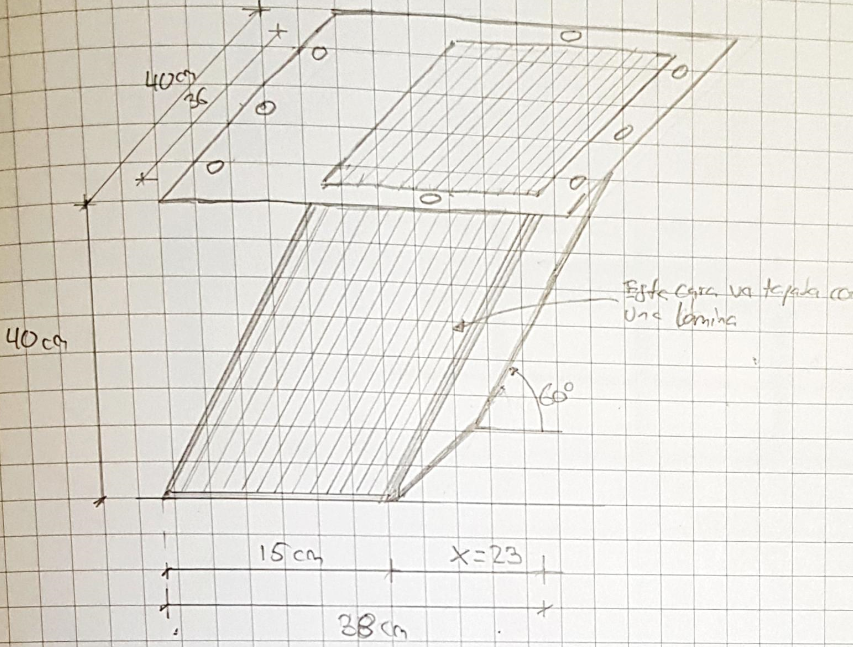 40cm
36
40cm
Esta cara va tapada co
una lamina
60°
15cm
X=23
38cm